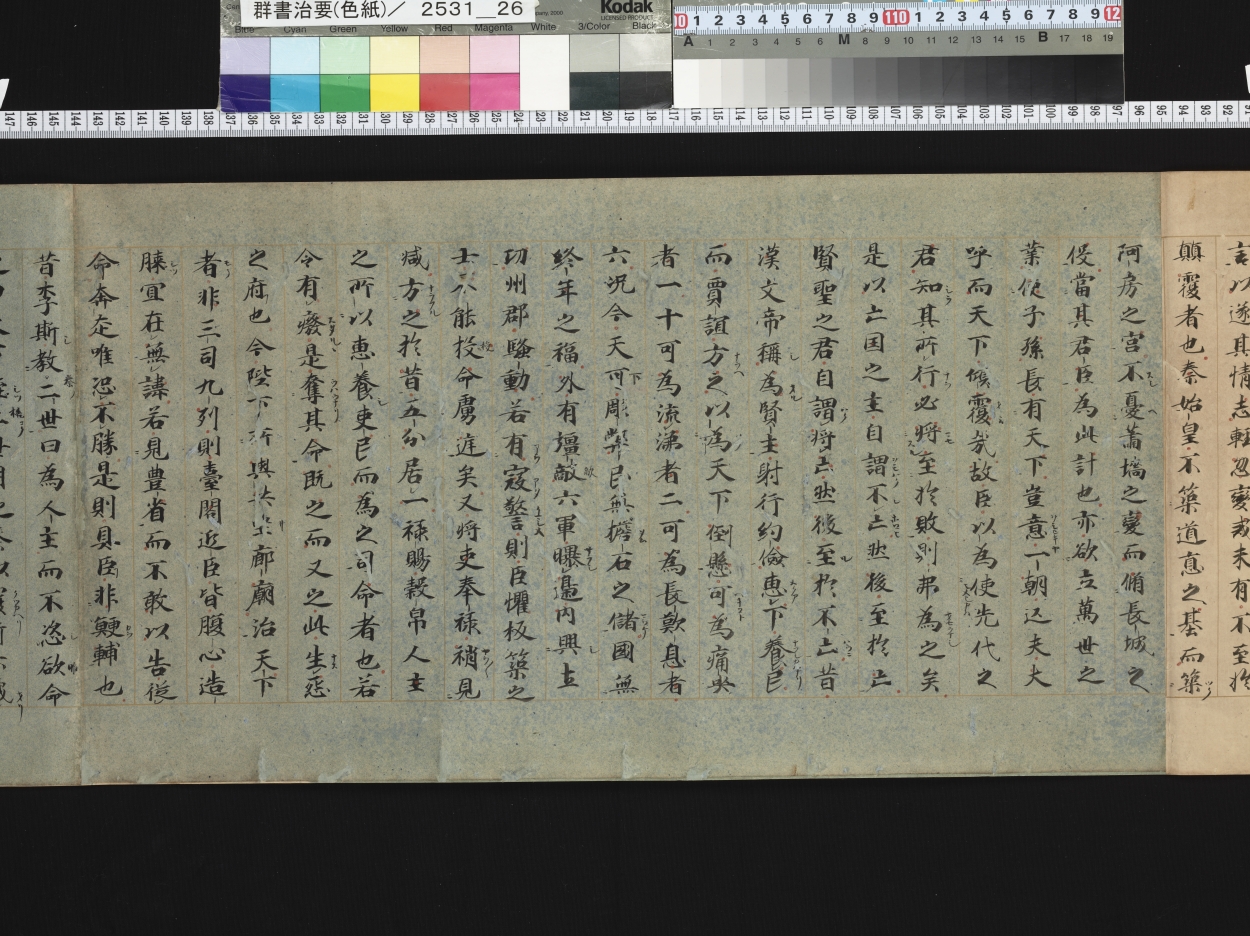 群書治要(色紙)/ 2531_26
Kodak
LICENSED PRODUCT
Blue Cyan Green Yellow Red Magenta White 3/Color Black
言以遂其情志輕忽變或未有不至於
顛覆者也秦始皇不築道惪之基而築
阿房之宮不憂蕭墻之變而脩長城之
役當其君臣為此計也亦欲立萬世之
業使子孫長有天下豈意一朝匹夫大
呼而天下傾覆哉故臣以為使先代之
君知其所行必將至於敗則弗為之矣
是以亡国之主自謂不亡然後至於亡
賢聖之君自謂將亡然後至於不亡昔
漢文帝稱為賢主躬行約儉惠下養民
而賈誼方之以為天下倒懸可為痛哭
者一十可為流涕者二可為長歎息者
六況今天下彫弊民無擔石之儲國無
終年之福外有壃敵六軍曝邉內興土
功州郡騷動若有寇警則臣懼板築之
士不能投命虜逰矣又將吏奉祿稍見
減方之於昔五分居一祿賜穀帛人主
之所以惠養吏民而為之司命者也若
令有癈是奪其命既之而又之此生惌
之府也今陛下所與共坐廊廟治天下
者非三司九列則臺閣近臣皆腹心造
膝冝在無諱若見豊省而不敢以告従
命奔走唯恐不勝是則具臣非鯁輔也
昔李斯教二世曰為人主而不恣欲命